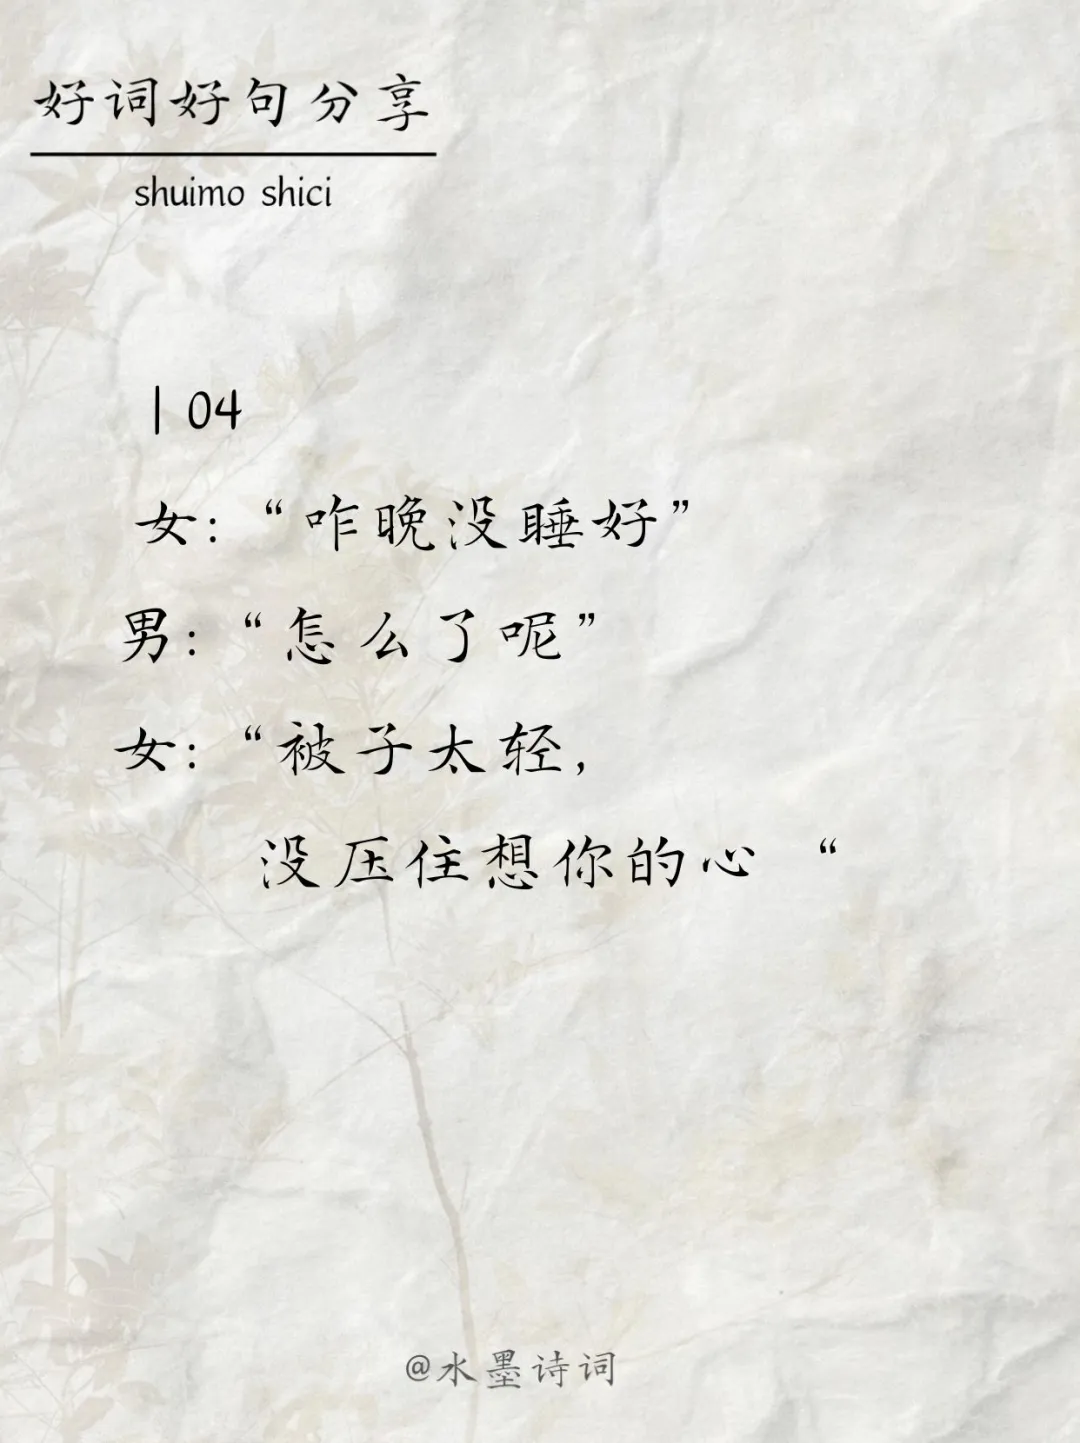 好词好句分享
shuimo shici
| 04
女：“昨晚没睡好”
男：“怎么了呢”
女：“被子太轻，
没压住想你的心 “
@水墨诗词